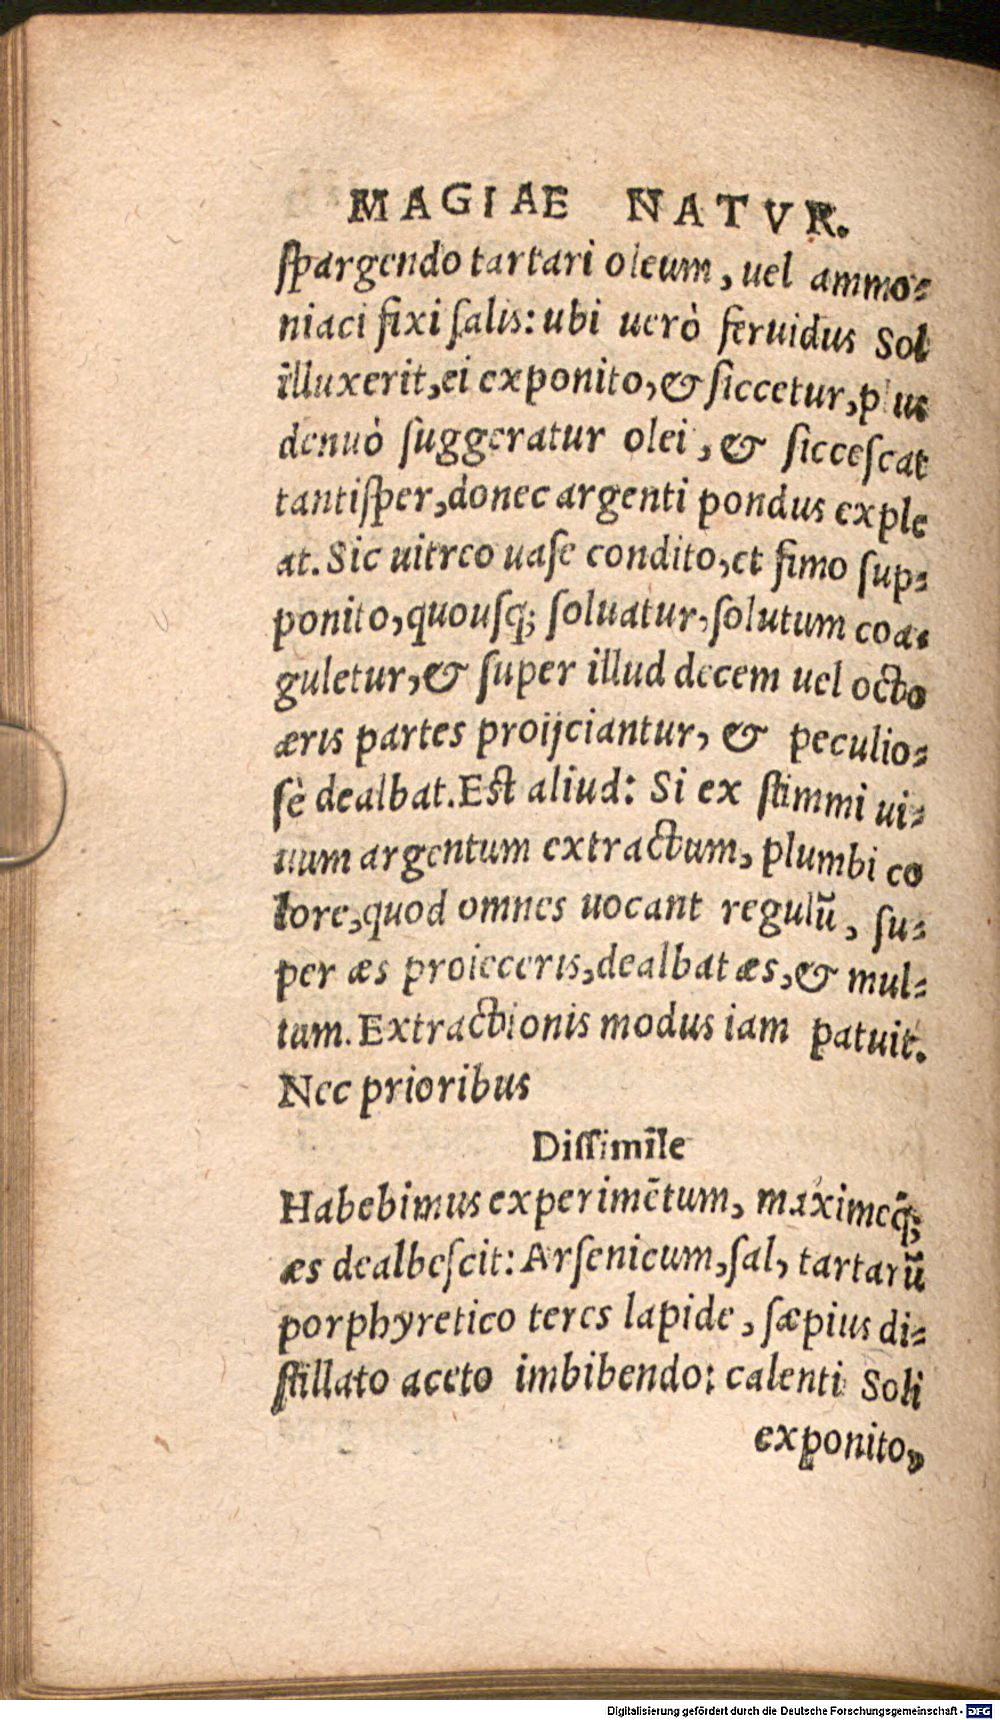 MAGIAE NATVR.
ſpargendo tartari oleum, uel ammo-
niaci fixi ſalis: ubi uerò feruidus Sol
illuxerit, ei exponito, & ſiccetur, plus
denuò ſuggeratur olei, & ſicceſcat
tantiſper, donec argenti pondus exple
at. Sic uitreo uaſe condito, et fimo ſup-
ponito, quouſq; ſoluatur, ſolutum coa-
guletur, & ſuper illud decem uel octo
æris partes proijciantur, & peculio-
ſè dealbat. Est aliud: Si ex ſtimmi ui-
uum argentum extractum, plumbi co
lore, quod omnes uocant regulū, ſu-
per æs proieceris, dealbat æs, & mul-
tum. Extractionis modus iam patuit.
Nec prioribus
Diſſimile
Habebimus experimētum, maximeq́;
æs dealbeſcit: Arſenicum, ſal, tartarū
porphyretico teres lapide, ſæpius di-
ſtillato aceto imbibendo: calenti Soli
exponito,
Digitalisierung gefördert durch die Deutsche Forschungsgemeinschaft - DFG